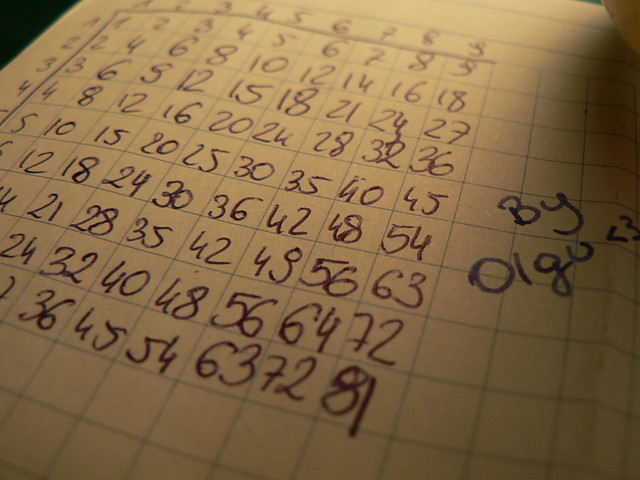 1 2 3 4 5 6 7 8 9
1 1 2 3 4 5 6 7 8 9
2 2 4 6 8 10 12 14 16 18
3 3 6 9 12 15 18 21 24 27
4 4 8 12 16 20 24 28 32 36
5 10 15 20 25 30 35 40 45
12 18 24 30 36 42 48 54
21 28 35 42 49 56 63
24 32 40 48 56 64 72
36 45 54 63 72 81
By
Olgu <3